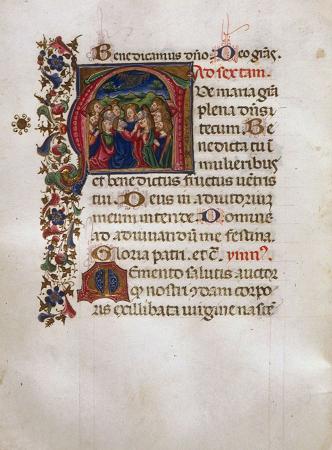 Benedicamus dño Deo grãs.
Ad sextam.
Ve maria grã
plena dñs i
tecum Be
nedicta tu ĩ
mulieribus
et benedictus fructus uẽtris
tui Deus in adiutorium
meum intende Domine
ad adiuuandũ me festina
Gloria patri et c̃. ymn9.
Memento salutis auctor
nostri dam corpo
ris ex illibata uirgine nascẽ